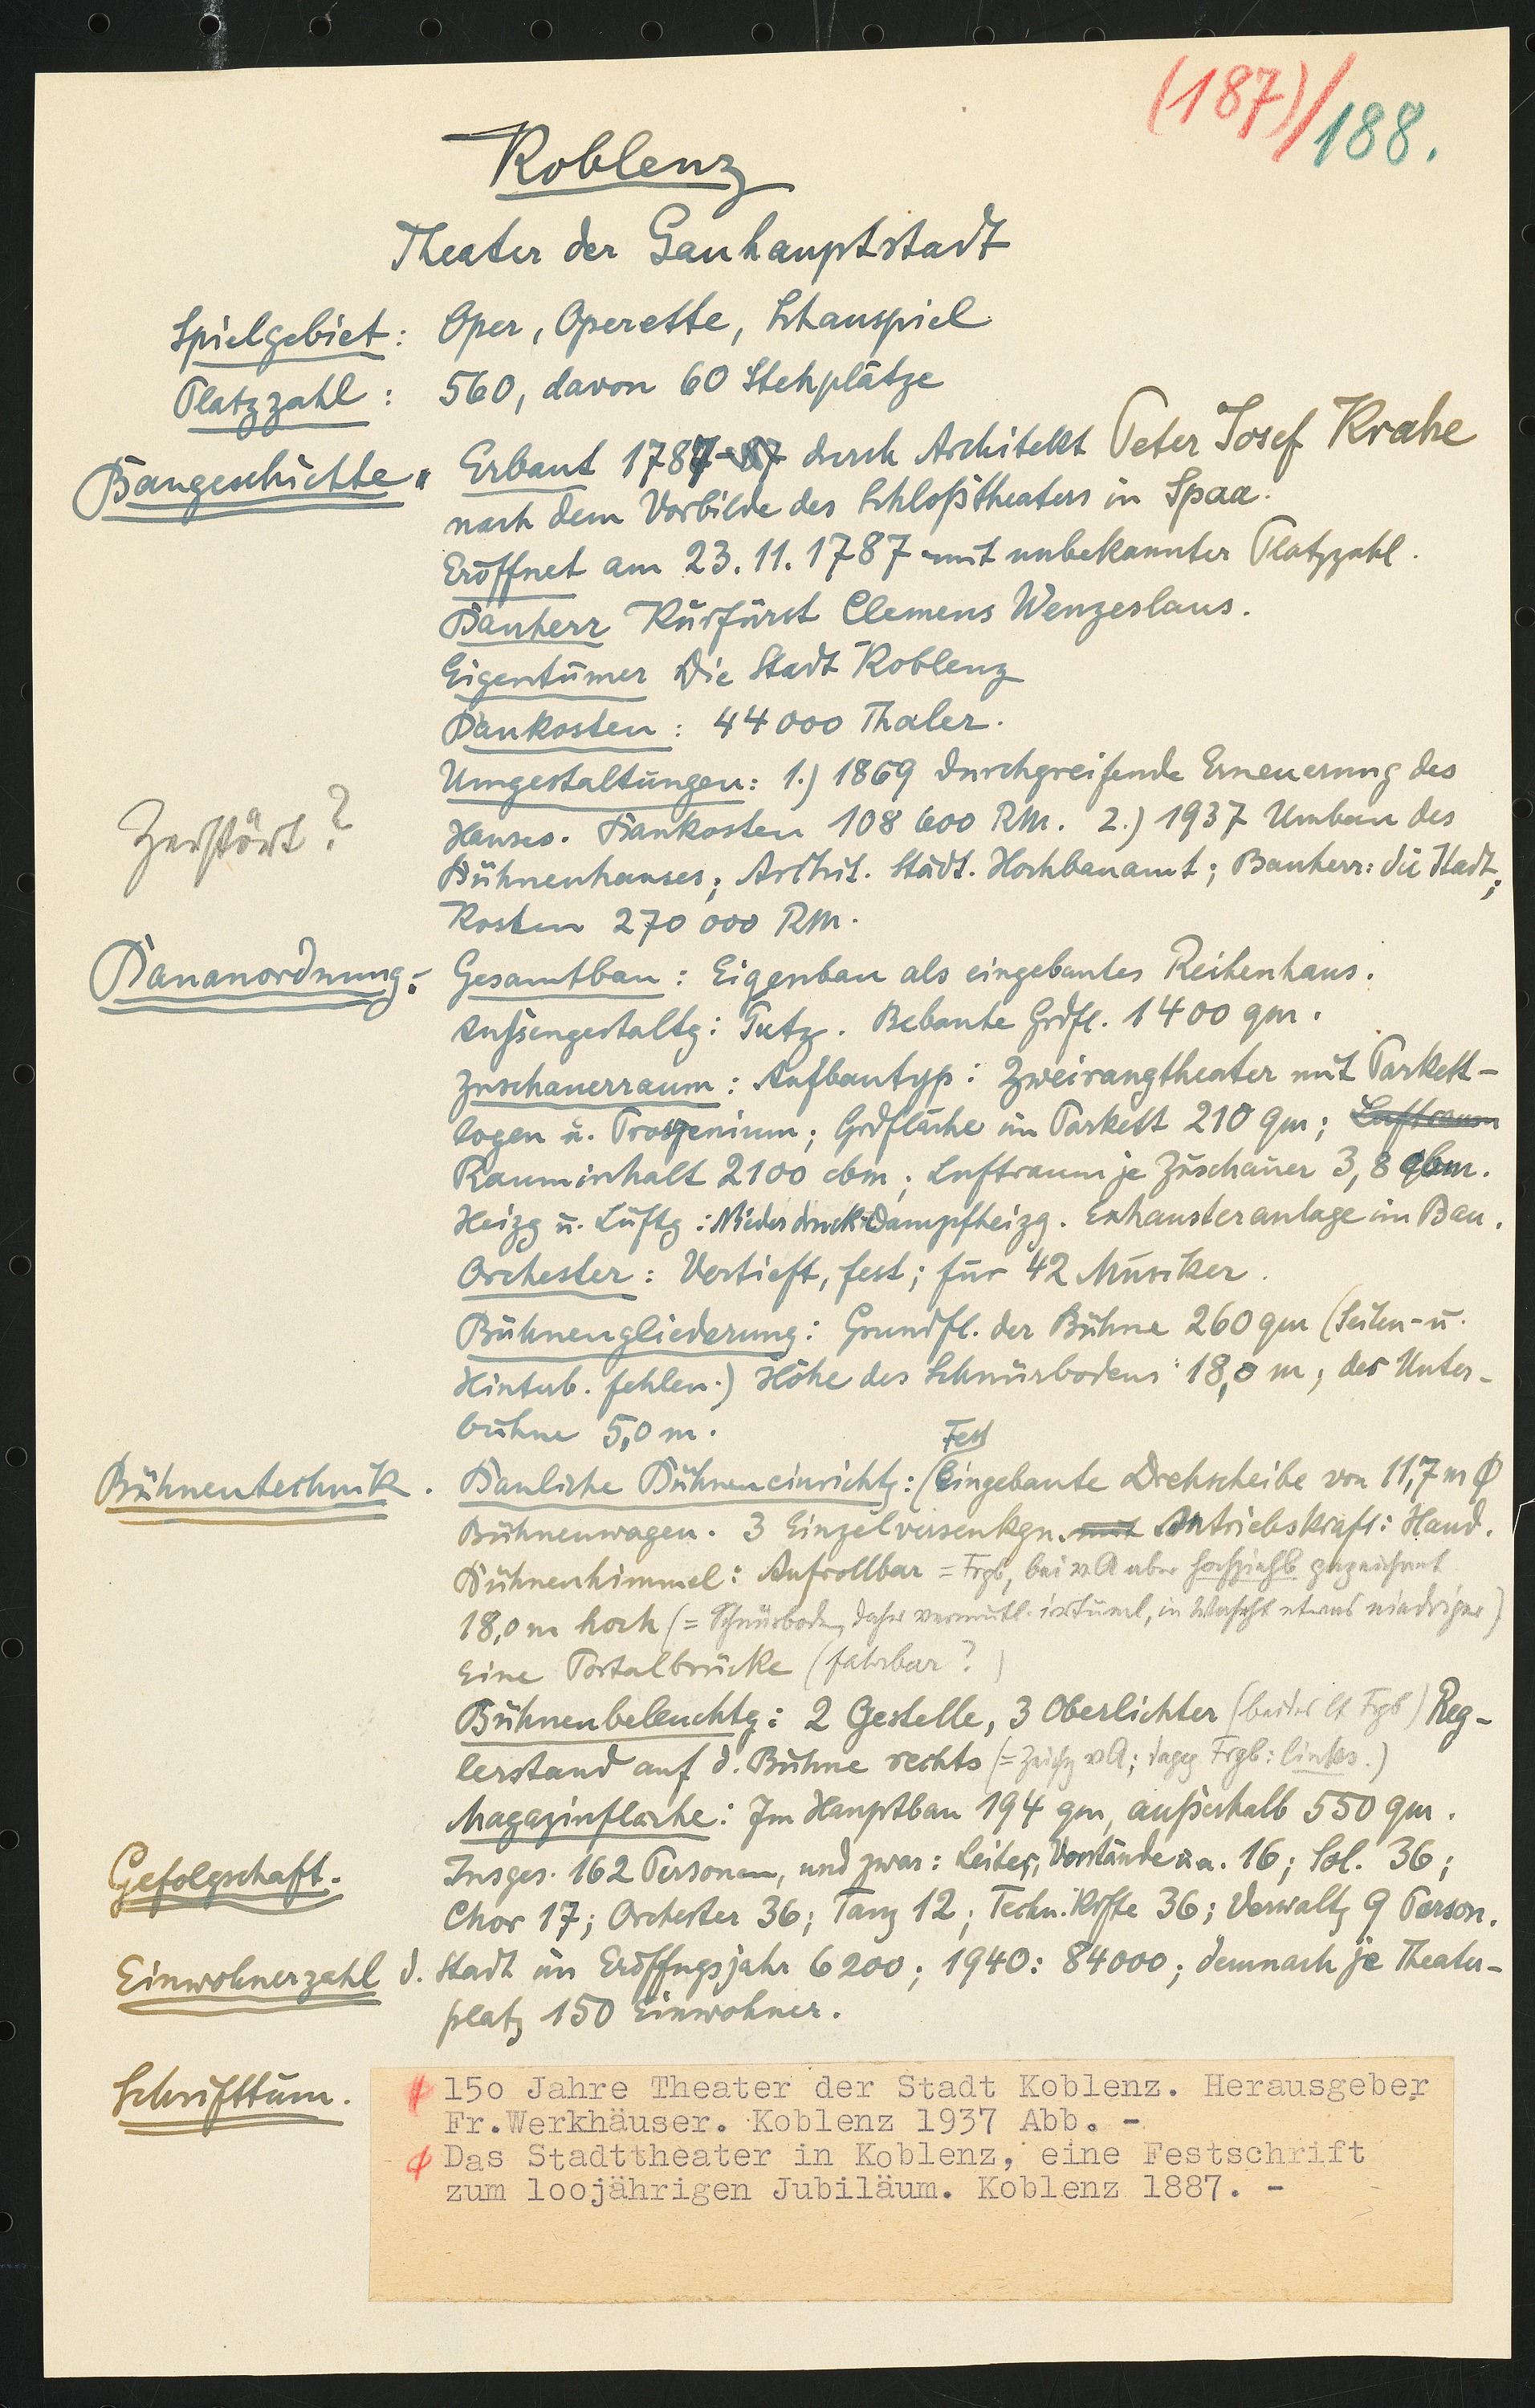 (187)/188.
Koblenz
Theater der Gauhauptstadt
Spielgebiet: Oper, Operette, Schauspiel
Platzzahl: 560, davon 60 Stehplätze
Baugeschichte. Erbaut 1787 durch Architekt Peter Josef Krahe
nach dem Vorbilde des Schloßtheaters in Spaa.
Eröffnet am 23.11.1787 mit unbekannter Platzzahl.
Bauherr Kurfürst Clemens Wenzeslaus.
Eigentümer Die Stadt Koblenz
Baukosten: 44 000 Thaler.
Umgestaltungen: 1.) 1869 durchgreifende Erneuerung des
Zerstört? Hauses. Baukosten 108 600 RM. 2.) 1937 Umbau des
Bühnenhauses; Archit. Städt. Hochbauamt; Bauherr: die Stadt;
Kosten 270 000 RM.
Bauanordnung: Gesamtbau: Eigenbau als eingebautes Reihenhaus.
Außengestaltg: Putz. Bebaute Grdfl. 1400 qm.
Zuschauerraum: Aufbautyp: Zweirangtheater mit Parkett-
logen u. Proszenium; Grdfläche im Parkett 210 qm; Luftraum
Rauminhalt 2100 cbm; Luftraum je Zuschauer 3,8 cbm.
Heizg u. Lüftg: Niederdruck-Dampfheizg. Exhausteranlage im Bau.
Orchester: Vertieft, fest; für 42 Musiker.
Bühnengliederung: Grundfl. der Bühne 260 qm (Seiten- u.
Hinterb. fehlen.) Höhe des Schnürbodens 18,0 m; der Unter-
bühne 5,0 m.
Bühnentechnik. Bauliche Bühneneinrichtg: (Fest Eingebaute Drehscheibe von 11,7 m Ø
Bühnenwagen. 3 Einzelversenkgn. mit Antriebskraft: Hand.
Bühnenhimmel: Aufrollbar = Frgb, bei vA aber hochziehb. gezeichnet
18,0 m hoch (= Schnürboden, daher vermutl. irrtüml., in etwas niedriger)
Eine Portalbrücke (fahrbar?)
Bühnenbeleuchtg: 2 Gestelle, 3 Oberlichter (beides lt Frgb) Reg-
lerstand auf d. Bühne rechts (= Zeichg vA; dageg. Frgb: links.)
Magazinfläche: Im Hauptbau 194 qm, außerhalb 550 qm.
Gefolgschaft. Insges. 162 Personen, und zwar: Leiter, Vorstände u.a. 16; Sol. 36;
Chor 17; Orchester 36; Tanz 12; Techn. Krfte 36; Verwaltg 9 Person.
Einwohnerzahl d. Stadt im Eröffngsjahr 6200; 1940: 84000; demnach je Theater-
platz 150 Einwohner.
Schrifttum. 150 Jahre Theater der Stadt Koblenz. Herausgeber
Fr.Werkhäuser. Koblenz 1937 Abb. -
Das Stadttheater in Koblenz, eine Festschrift
zum 100jährigen Jubiläum. Koblenz 1887. -